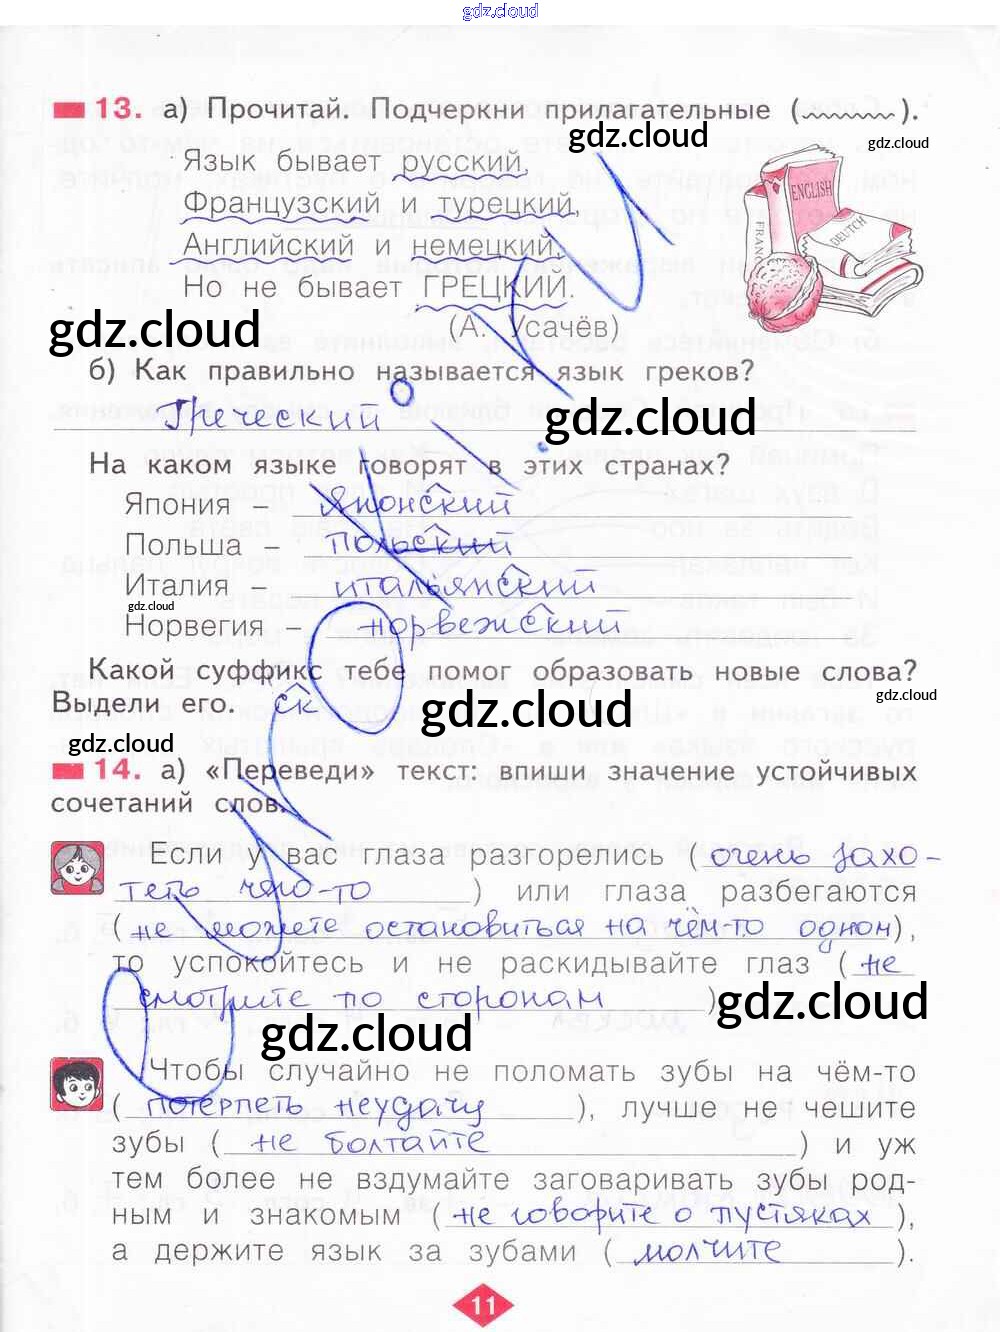 gdz.cloud
13. а) Прочитай. Подчеркни прилагательные ( ).
gdz.cloud
gdz.cloud
Язык бывает русский,
Французский и турецкий,
Английский и немецкий,
Но не бывает ГРЕЦКИЙ.
(А. Усачёв)
ENGLISH
DEUTCH
gdz.cloud
б) Как правильно называется язык греков?
Греческий
gdz.cloud
На каком языке говорят в этих странах?
Япония – японский
Польша – польский
Италия – итальянский
gdz.cloud
Норвегия – норвежский
Какой суффикс тебе помог образовать новые слова?
Выдели его. ск
gdz.cloud
gdz.cloud
gdz.cloud
14. а) «Переведи» текст: впиши значение устойчивых
сочетаний слов.
Если у вас глаза разгорелись (очень захо-
теть чего-то) или глаза разбегаются
(не можете остановиться на чём-то одном),
то успокойтесь и не раскидывайте глаз (не
смотрите по сторонам)
gdz.cloud
gdz.cloud
Чтобы случайно не поломать зубы на чём-то
(потерпеть неудачу), лучше не чешите
зубы (не болтайте) и уж
тем более не вздумайте заговаривать зубы род-
ным и знакомым (не говорите о пустяках),
а держите язык за зубами (молчите).
11